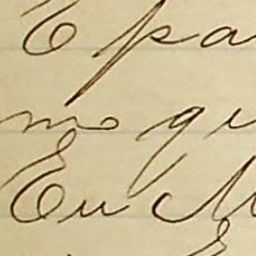 E pa
mo qu
Eu M